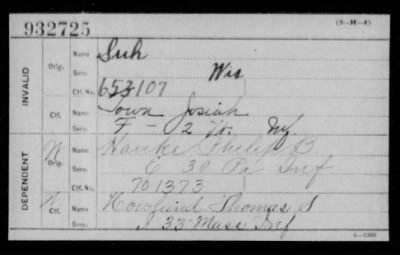 932725
(3-H-4)
INVALID
Orig. Name Suh
Serv. Wis
Ctf. No. 653107
Ctf. Name Town Josiah
Serv. F - 2 Inf.
DEPENDENT
W Orig. Name Hauke Philip B
Serv. E 30 Pa Inf
Ctf. No. 701373
Ctf. Name Howland Thomas S
Serv. I 33 Mass Inf